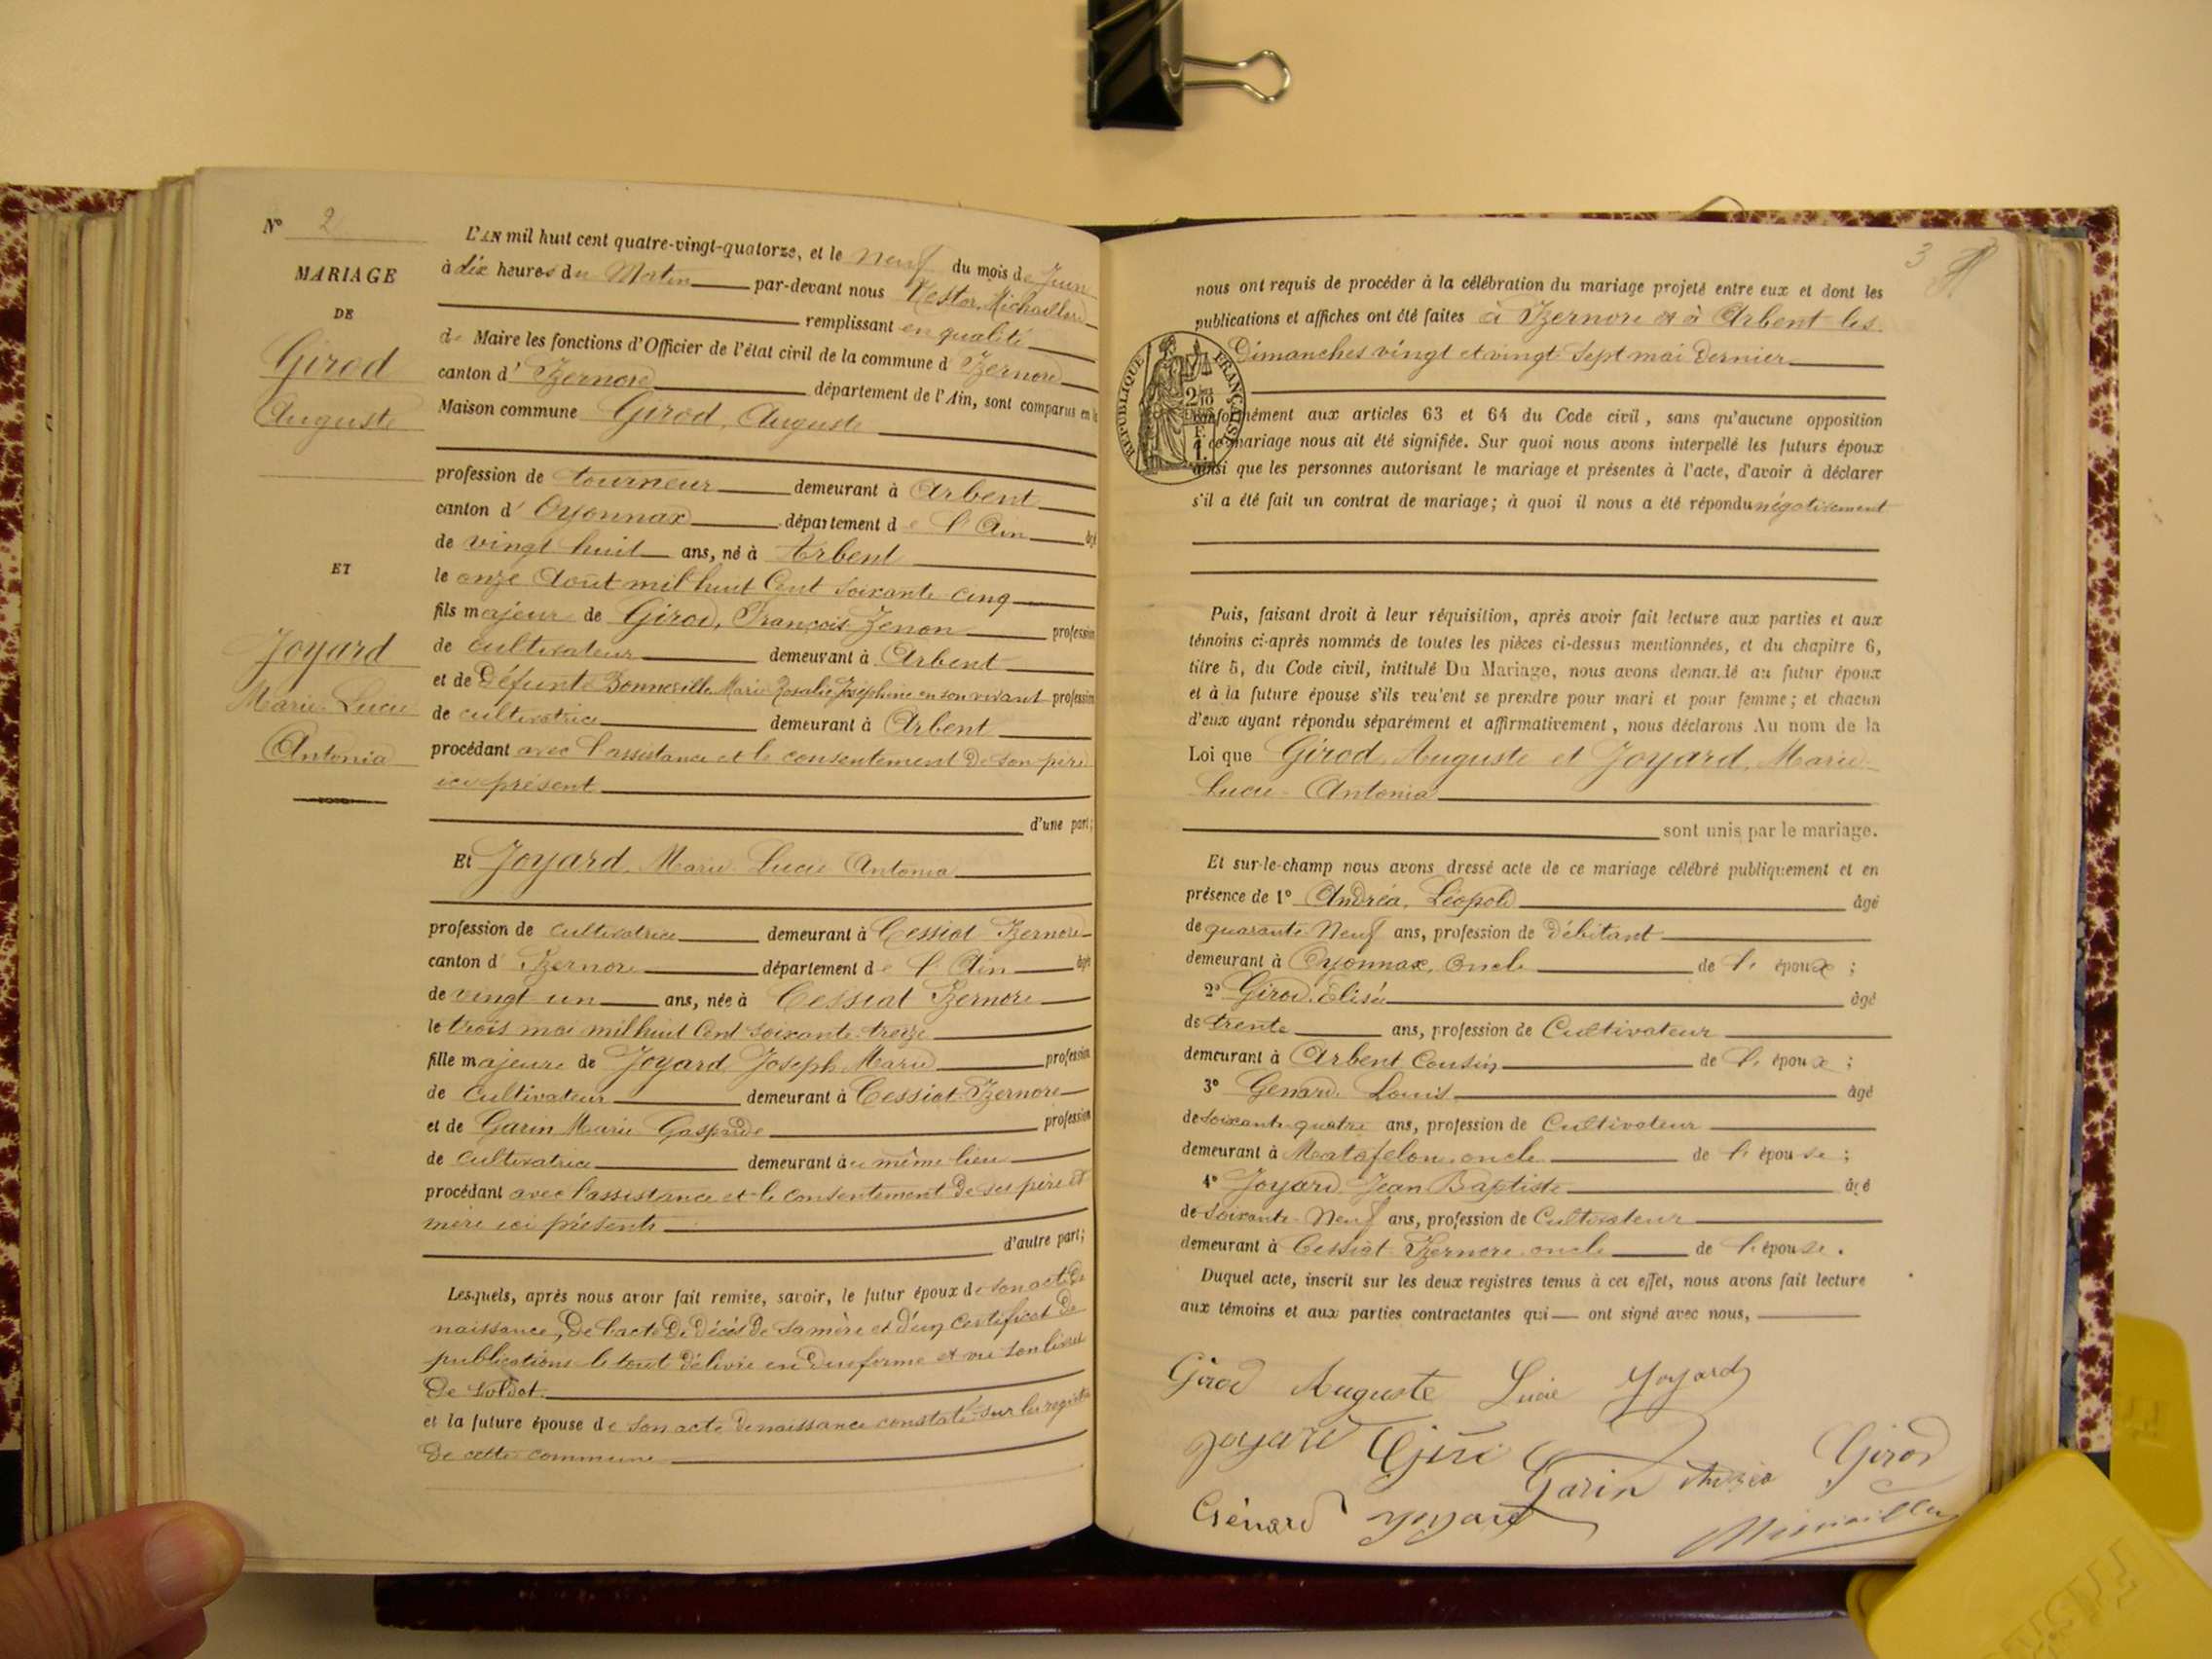 N° 2
MARIAGE
DE
Girod
Auguste
ET
Joyard
Marie Lucie
Antonia
L'AN mil huit cent quatre-vingt-quatorze, et le neuf du mois de Juin
à dix heures du Matin par-devant nous Nestor Michaillard
remplissant en qualité
de Maire les fonctions d'Officier de l'état civil de la commune d'Izernore
canton d'Izernore département de l'Ain, sont comparus en la
Maison commune Girod, Auguste
profession de tourneur demeurant à Arbent
canton d'Oyonnax département de l'Ain âgé
de vingt huit ans, né à Arbent
le onze Août mil huit Cent soixante cinq
fils majeur de Girod, François Zenon profession
de cultivateur demeurant à Arbent
et de Défunte Bonneville Marie Rosalie Joséphine en son vivant profession
de cultivatrice demeurant à Arbent
procédant avec l'assistance et le consentement de son père
ici présent
d'une part;
Et Joyard, Marie Lucie Antonia
profession de cultivatrice demeurant à Cessiat Izernore
canton d'Izernore département de l'Ain âgée
de vingt un ans, née à Cessiat Izernore
le trois mai mil huit Cent soixante treize
fille majeure de Joyard Joseph Marie profession
de Cultivateur demeurant à Cessiat-Izernore
et de Garin Marie Gasparde profession
de Cultivatrice demeurant au même lieu
procédant avec l'assistance et le consentement de ses père et
mère ici présents
d'autre part;
Lesquels, après nous avoir fait remise, savoir, le futur époux de son acte de
naissance, de l'acte de décès de sa mère et d'un Certificat de
publications le tout délivré en due forme et vu son livret
de soldat.
et la future épouse de son acte de naissance constaté sur les registres
de cette commune
3
nous ont requis de procéder à la célébration du mariage projeté entre eux et dont les
publications et affiches ont été faites à Izernore et à Arbent les
Dimanches vingt et vingt sept mai dernier
RÉPUBLIQUE FRANÇAISE
conformément aux articles 63 et 64 du Code civil, sans qu'aucune opposition
à ce mariage nous ait été signifiée. Sur quoi nous avons interpellé les futurs époux
ainsi que les personnes autorisant le mariage et présentes à l'acte, d'avoir à déclarer
s'il a été fait un contrat de mariage; à quoi il nous a été répondu négativement
Puis, faisant droit à leur réquisition, après avoir fait lecture aux parties et aux
témoins ci-après nommés de toutes les pièces ci-dessus mentionnées, et du chapitre 6,
titre 5, du Code civil, intitulé Du Mariage, nous avons demandé au futur époux
et à la future épouse s'ils veulent se prendre pour mari et pour femme; et chacun
d'eux ayant répondu séparément et affirmativement, nous déclarons Au nom de la
Loi que Girod, Auguste et Joyard, Marie
Lucie Antonia
sont unis par le mariage.
Et sur-le-champ nous avons dressé acte de ce mariage célébré publiquement et en
présence de 1° Andréa, Léopold âgé
de quarante Neuf ans, profession de débitant
demeurant à Oyonnax, oncle de l'époux;
2° Girod, Elisée âgé
de trente ans, profession de Cultivateur
demeurant à Arbent Cousin de l'époux;
3° Genard, Louis âgé
de soixante quatre ans, profession de Cultivateur
demeurant à Matafelon, oncle de l'épouse;
4° Joyard Jean Baptiste âgé
de soixante Neuf ans, profession de Cultivateur
demeurant à Cessiat Izernore oncle de l'épouse.
Duquel acte, inscrit sur les deux registres tenus à cet effet, nous avons fait lecture
aux témoins et aux parties contractantes qui ont signé avec nous,
Girod Auguste Lucie Joyard
Joyard Garin Girod
Génard Joyard